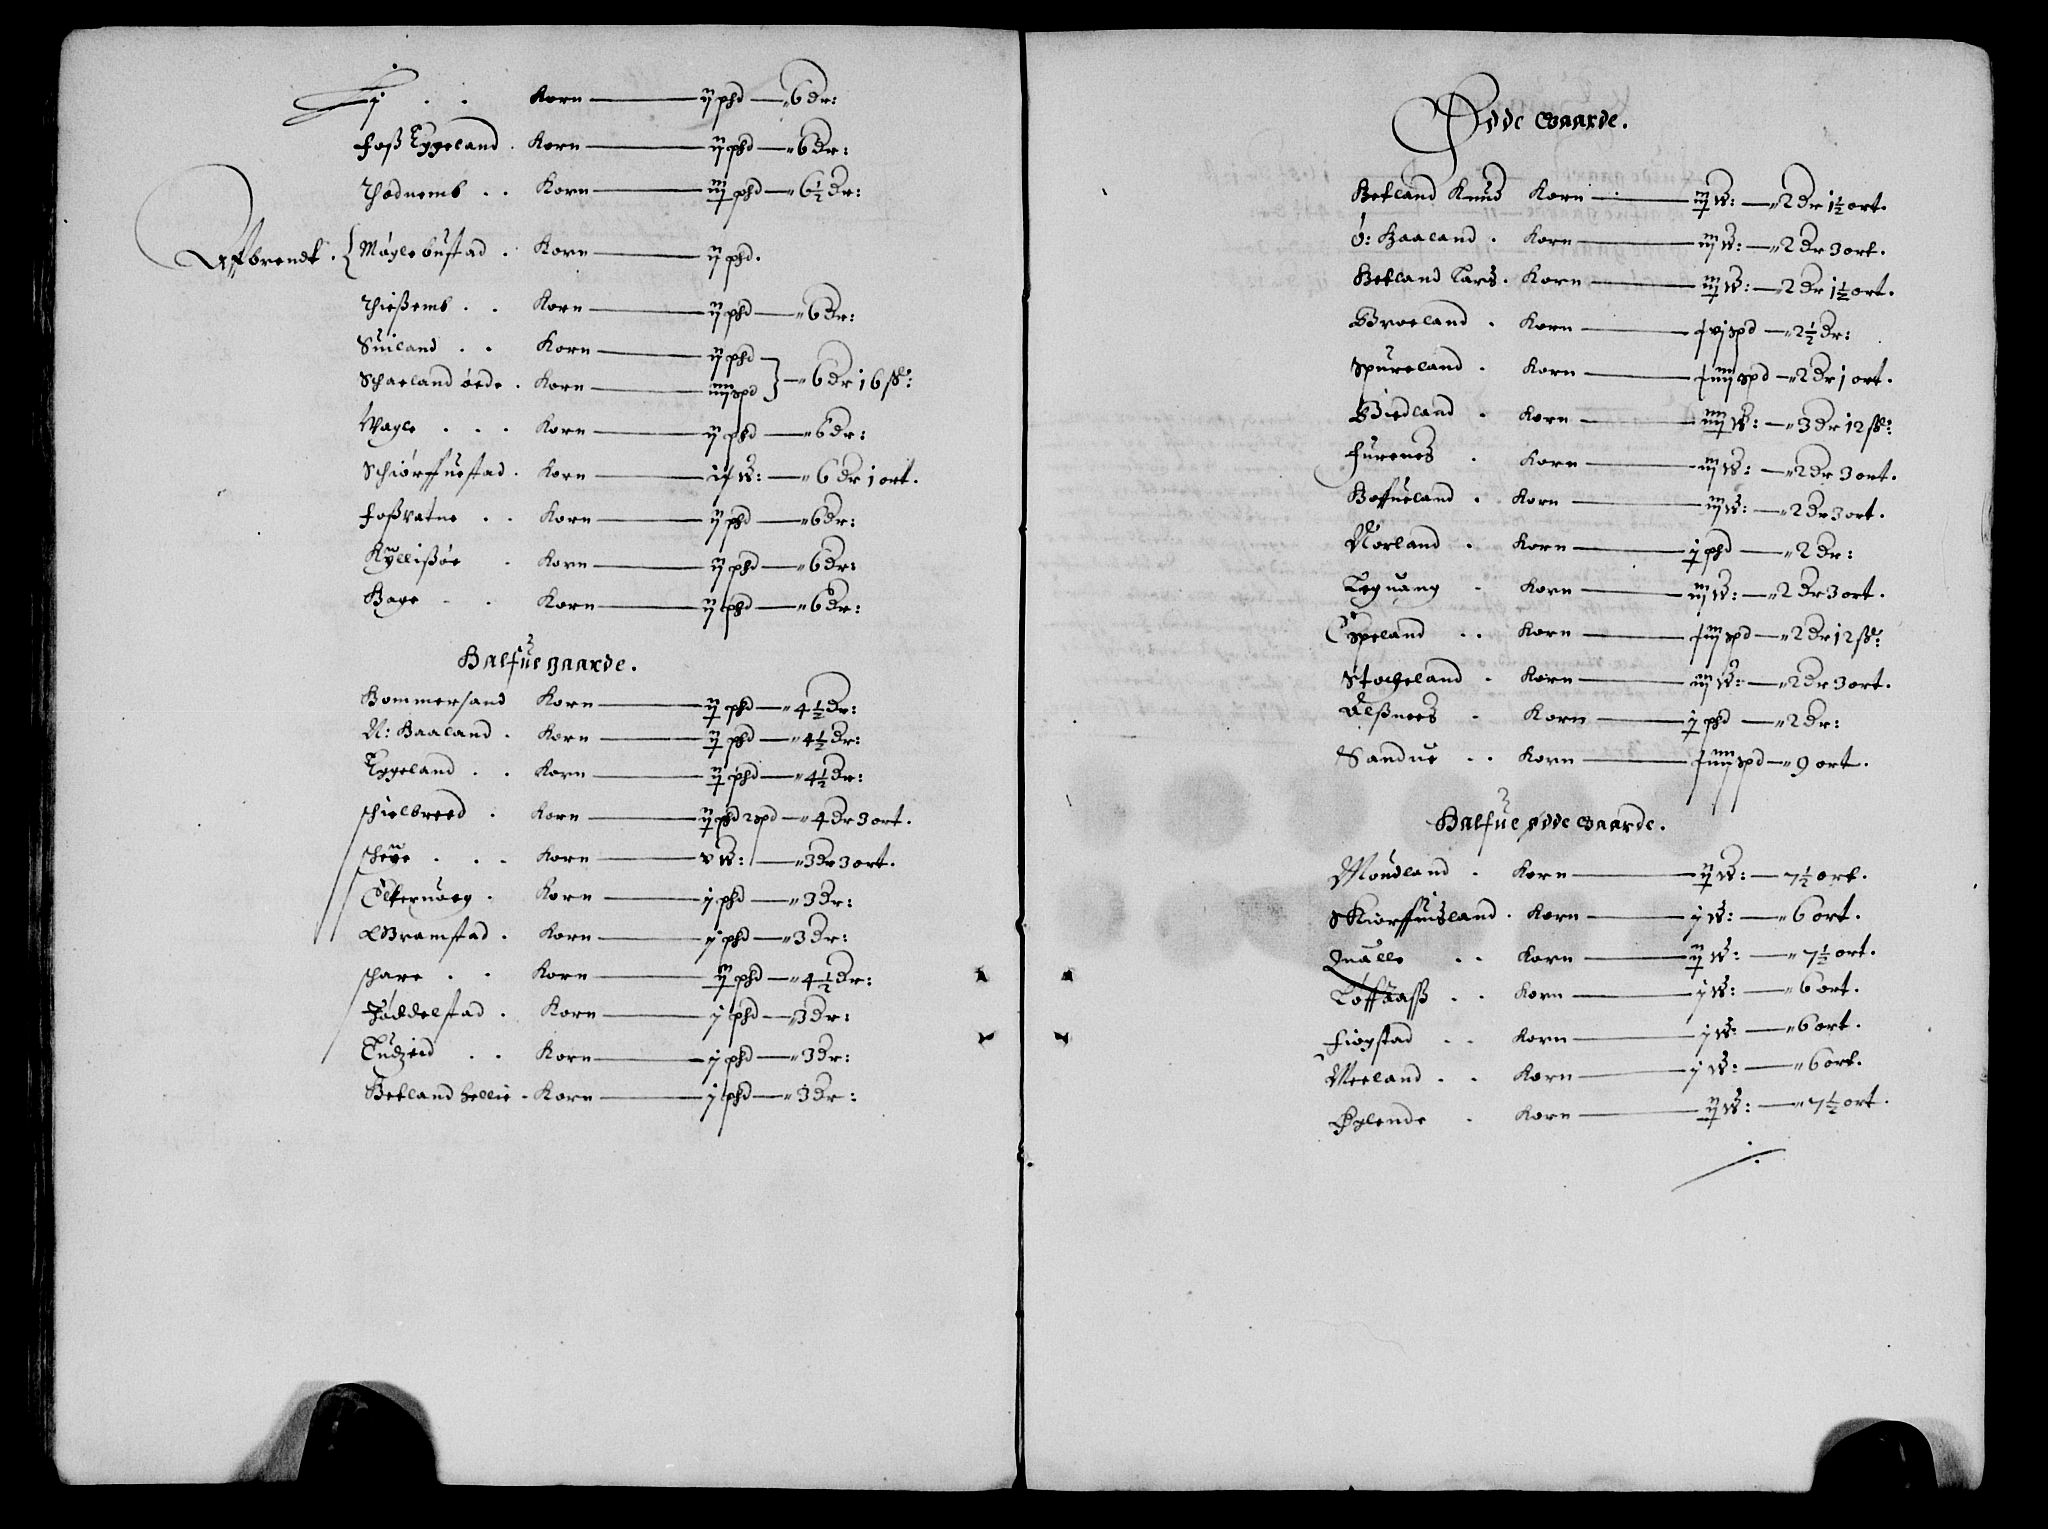 Korn — ij phd — 6 dr:
Foß Eggeland . Korn — ij phd — 6 dr:
Thodnemb . . Korn — iij phd — 6½ dr:
Affbrendt . { Møglebustad . Korn — ij phd.
Thießemb . . Korn — ij phd — 6 dr:
Suiland . . Korn — ij phd
Schaeland øede . Korn — iiij spd } — 6 dr 16 ß:
Wagle . . . Korn — ij phd — 6 dr:
Schiørffuestad . Korn — — 6 dr 1 ort.
Foßvatne . . Korn — ij phd — 6 dr:
Kyllißøe . Korn — ij phd — 6 dr:
Hage . . Korn — ij phd — 6 dr:
Halfue gaarde.
Hommersand Korn — ij phd — 4½ dr:
N: Haaland . Korn — ij phd — 4½ dr:
Eggeland . . Korn — ij phd — 4½ dr:
schielbreed . Korn — ij phd 2 spd — 4 dr 3 ort.
. . . Korn — v w: — 3 dr 3 ort.
. Korn — j phd — 3 dr:
Gramstad . Korn — j phd — 3 dr:
schare . . Korn — ij phd — 4½ dr:
Joddelstad . Korn — j phd — 3 dr:
. . Korn — j phd — 3 dr:
Hetland hellie . Korn — j phd — 3 dr:
Ødde Gaarde.
Hetland Knud Korn — iij w: — 2 dr 1½ ort.
ø: Haaland . Korn — iij w: — 2 dr 3 ort.
Hetland Lars . Korn — iij w: — 2 dr 1½ ort.
Broeland . Korn — vj spd — 2½ dr:
Spureland . Korn — iij spd — 2 dr 1 ort.
Giedland . Korn — iiij w: — 3 dr 12 ß:
Furenes . Korn — iij w: — 2 dr 3 ort.
Hoffueland . Korn — iij w: — 2 dr 3 ort.
Norland . Korn — j phd — 2 dr:
Leguang . Korn — iij w: — 2 dr 3 ort.
Espeland . . Korn — iij spd — 2 dr 12 ß:
Stocheland . Korn — iij w: — 2 dr 3 ort.
Alßnees . Korn — j phd — 2 dr:
Sandue . . Korn — iiij spd — 9 ort.
Halfue ødde Gaarde.
Moudland . Korn — ij w: — 7½ ort.
Skiorffuisland . Korn — j w: — 6 ort.
Qualle . . Korn — ij w: — 7½ ort.
Løffaaß . . Korn — j w: — 6 ort.
Fiøgstad . . Korn — j w: — 6 ort.
Meeland . . Korn — j w: — 6 ort.
Øglende . Korn — ij w: — 7½ ort.